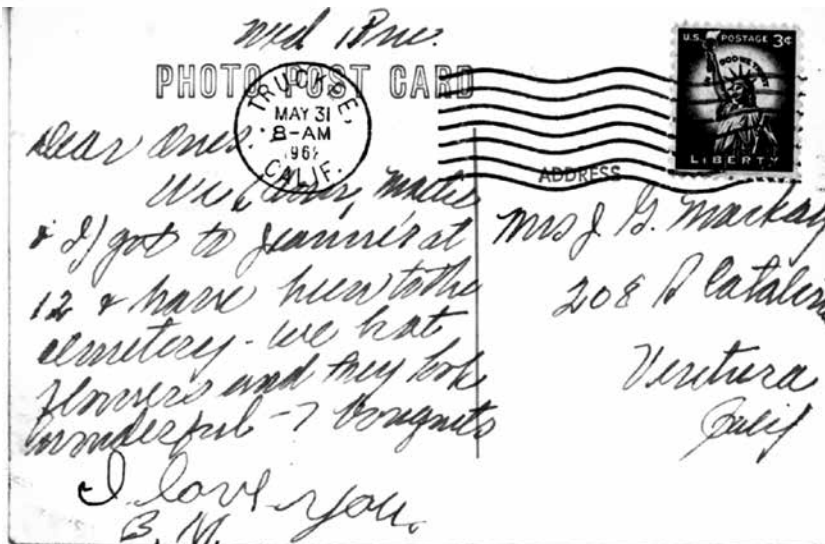 Wed 1 P.M.
PHOTO POST CARD
TRUCKEE,
MAY 31
8-AM
CALIF.
U.S. POSTAGE 3¢
IN GOD WE TRUST
LIBERTY
ADDRESS
Dear Ones:
We
& I) got to Jeanne's at
12 & have been to the
cemetery - we
flowers and they look
wonderful - 7 bouquets
I love you.
B. M.
Mrs J. G. Mackay
208 Catalina
Ventura
Calif